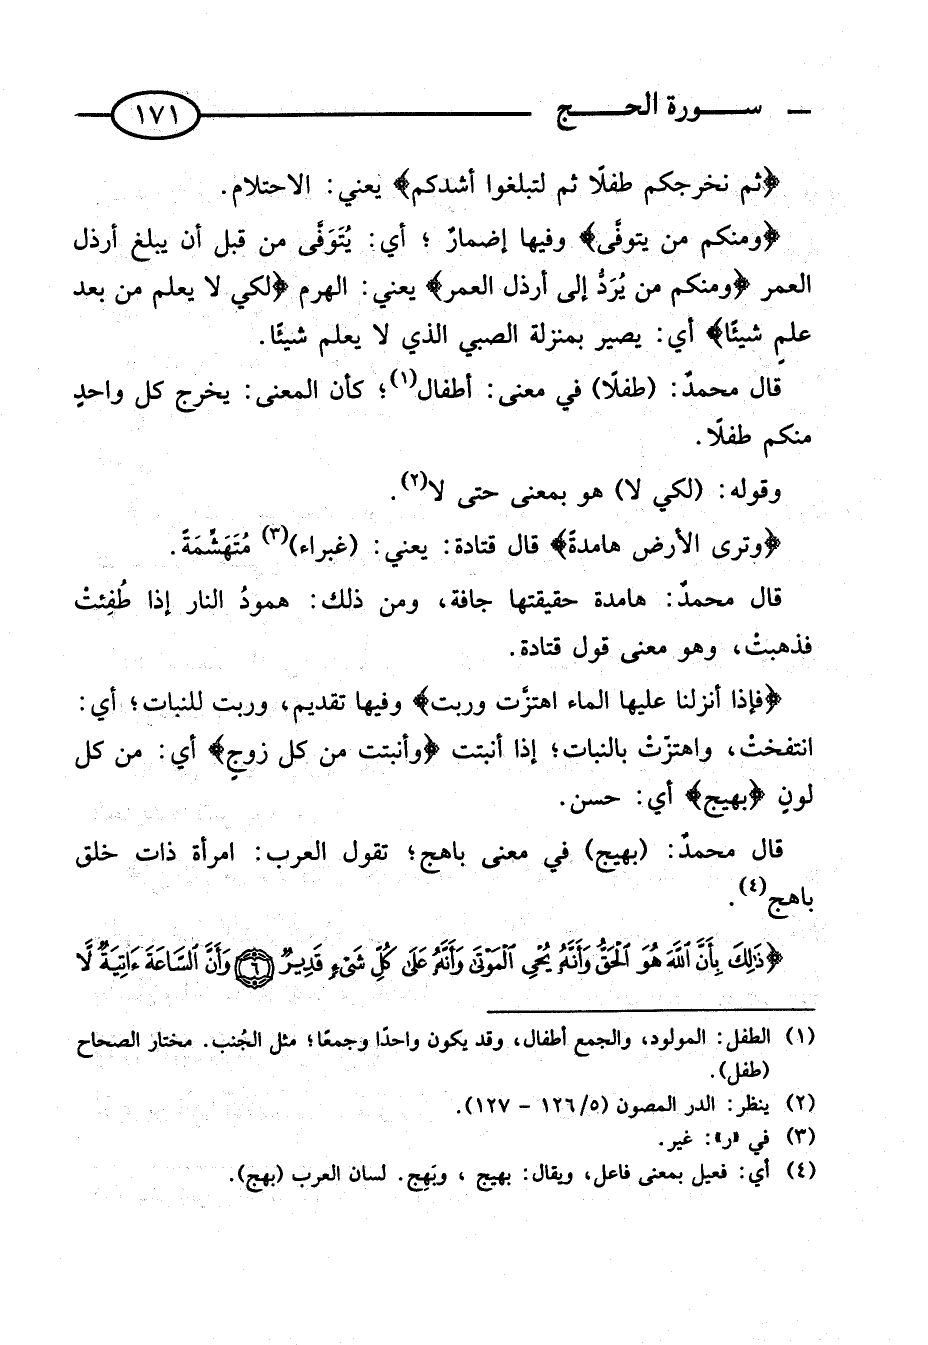 ـ ســـورة الحـــج ١٧١
﴿ثم نخرجكم طفلًا ثم لتبلغوا أشدكم﴾ يعني: الاحتلام.
﴿ومنكم من يتوفَّى﴾ وفيها إضمارٌ ؛ أي: يُتَوَفَّى من قبل أن يبلغ أرذل
العمر ﴿ومنكم من يُرَدُّ إلى أرذل العمر﴾ يعني: الهرم ﴿لكي لا يعلم من بعد
علمٍ شيئًا﴾ أي: يصير بمنزلة الصبي الذي لا يعلم شيئًا.
قال محمدٌ: (طفلًا) في معنى: أطفال(١)؛ كأن المعنى: يخرج كل واحدٍ
منكم طفلًا.
وقوله: (لكي لا) هو بمعنى حتى لا(٢).
﴿وترى الأرض هامدةً﴾ قال قتادة: يعني: (غبراء)(٣) مُتَهَشِّمَةً.
قال محمدٌ: هامدة حقيقتها جافة، ومن ذلك: همودُ النار إذا طُفِئتْ
فذهبتْ، وهو معنى قول قتادة.
﴿فإذا أنزلنا عليها الماء اهتزَّت وربت﴾ وفيها تقديم، وربت للنبات؛ أي:
انتفختْ، واهتزّتْ بالنبات؛ إذا أنبتت ﴿وأنبتت من كل زوجٍ﴾ أي: من كل
لونٍ ﴿بهيج﴾ أي: حسن.
قال محمدٌ: (بهيج) في معنى باهج؛ تقول العرب: امرأة ذات خلق
باهج(٤).
﴿ذَٰلِكَ بِأَنَّ ٱللَّهَ هُوَ ٱلْحَقُّ وَأَنَّهُۥ يُحْىِ ٱلْمَوْتَىٰ وَأَنَّهُۥ عَلَىٰ كُلِّ شَىْءٍ قَدِيرٌ ٦ وَأَنَّ ٱلسَّاعَةَ ءَاتِيَةٌ لَّا
(١) الطفل: المولود، والجمع أطفال، وقد يكون واحدًا وجمعًا؛ مثل الجُنب. مختار الصحاح
(طفل).
(٢) ينظر: الدر المصون (١٢٦/٥ - ١٢٧).
(٣) في «ر»: غير.
(٤) أي: فعيل بمعنى فاعل، ويقال: بهيج ، وبَهِج. لسان العرب (بهج).